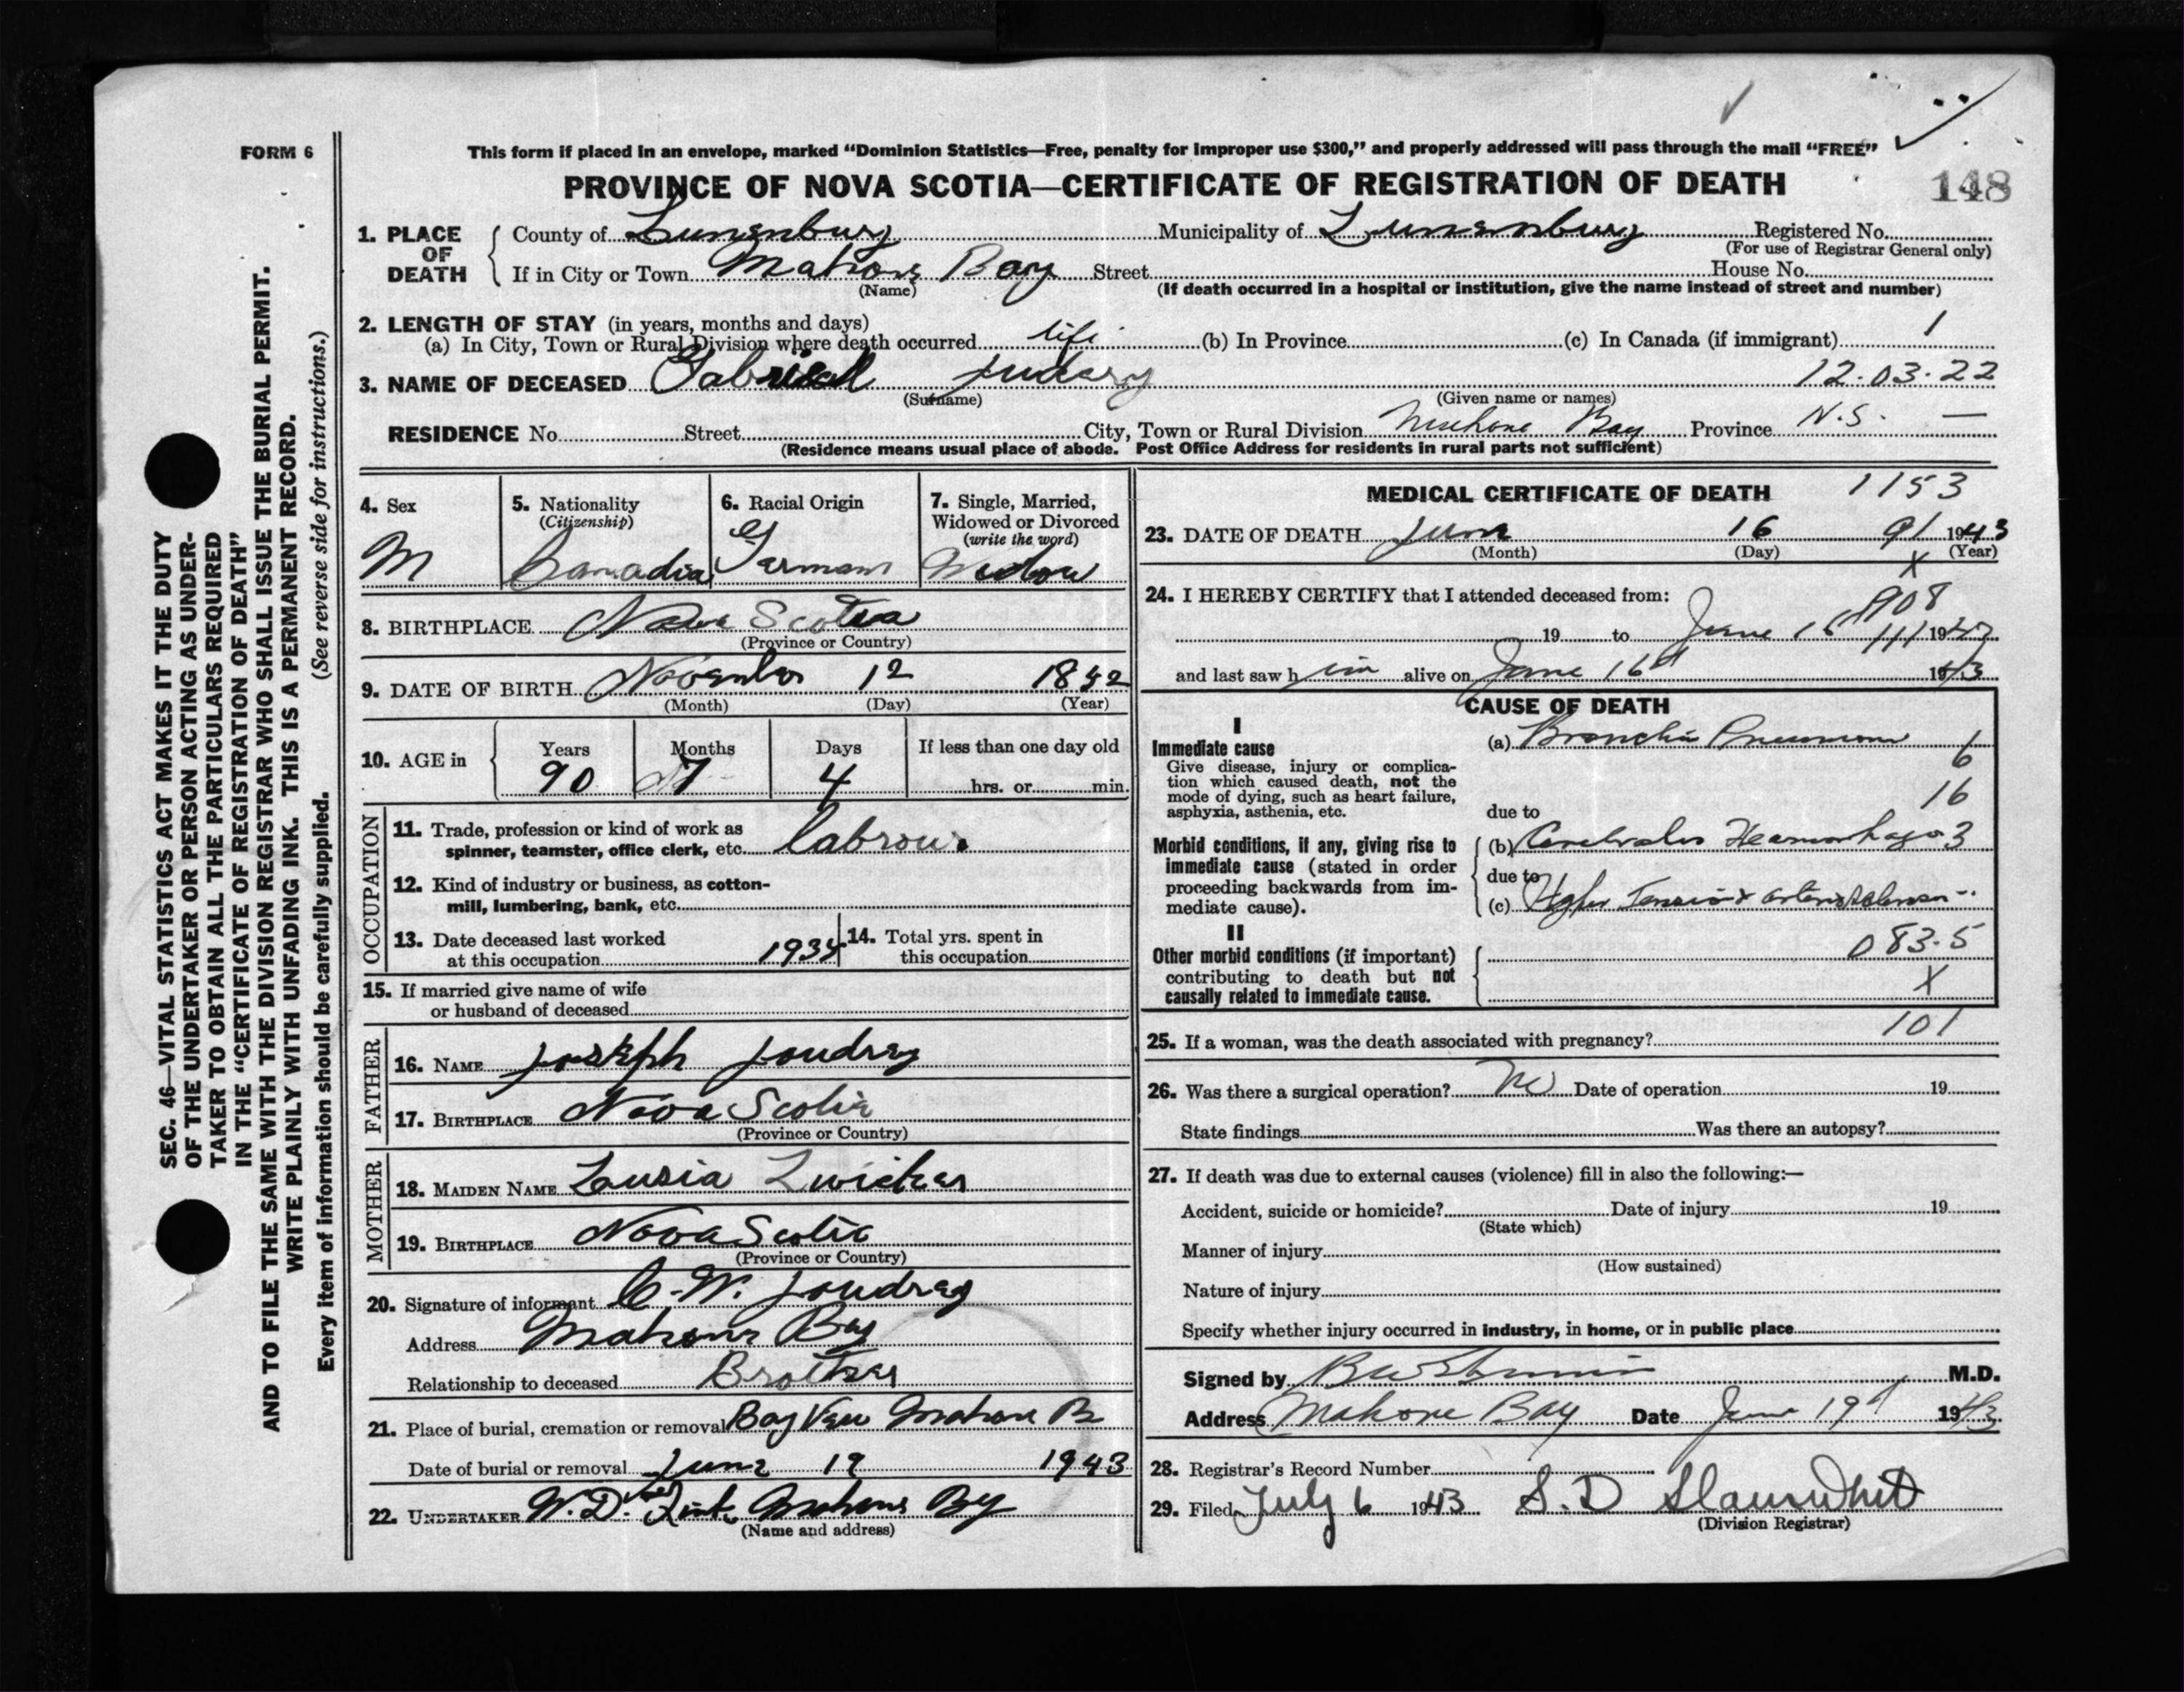 FORM 6
This form if placed in an envelope, marked “Dominion Statistics—Free, penalty for improper use $300,” and properly addressed will pass through the mail “FREE”
PROVINCE OF NOVA SCOTIA—CERTIFICATE OF REGISTRATION OF DEATH
148
1. PLACE OF DEATH
County of Lunenburg Municipality of Lunenburg Registered No.
(For use of Registrar General only)
If in City or Town Mahone Bay Street House No.
(Name) (If death occurred in a hospital or institution, give the name instead of street and number)
2. LENGTH OF STAY (in years, months and days)
(a) In City, Town or Rural Division where death occurred life (b) In Province (c) In Canada (if immigrant) 1
3. NAME OF DECEASED Gabrieal 12.03.22
(Surname) (Given name or names)
RESIDENCE No. Street City, Town or Rural Division Mahone Bay Province N.S. —
(Residence means usual place of abode. Post Office Address for residents in rural parts not sufficient)
4. Sex
M
5. Nationality
(Citizenship)
Canadia
6. Racial Origin
German
7. Single, Married,
Widowed or Divorced
(write the word)
Widow
8. BIRTHPLACE Nova Scotia
(Province or Country)
9. DATE OF BIRTH November 12 1852
(Month) (Day) (Year)
10. AGE in
Years Months Days If less than one day old
90 7 4 hrs. or min.
OCCUPATION
11. Trade, profession or kind of work as
spinner, teamster, office clerk, etc. labrour
12. Kind of industry or business, as cotton-
mill, lumbering, bank, etc.
13. Date deceased last worked
at this occupation 1934
14. Total yrs. spent in
this occupation
15. If married give name of wife
or husband of deceased
FATHER
16. NAME Joseph Joudrey
17. BIRTHPLACE Nova Scotia
(Province or Country)
MOTHER
18. MAIDEN NAME Lusia Zwicker
19. BIRTHPLACE Nova Scotia
(Province or Country)
20. Signature of informant C. W. Joudrey
Address Mahone Bay
Relationship to deceased Brother
21. Place of burial, cremation or removal Bay View Mahone B
Date of burial or removal June 19 1943
22. UNDERTAKER W. D. Mahone Bay
(Name and address)
MEDICAL CERTIFICATE OF DEATH 1153
23. DATE OF DEATH June 16 91 1943
(Month) (Day) (Year)
X
24. I HEREBY CERTIFY that I attended deceased from:
908
19 to June 16 111 1943
and last saw h im alive on June 16th 1943
CAUSE OF DEATH
I
Immediate cause
Give disease, injury or complica-
tion which caused death, not the
mode of dying, such as heart failure,
asphyxia, asthenia, etc.
(a) Broncho Pneumonia 6
16
due to
Morbid conditions, if any, giving rise to
immediate cause (stated in order
proceeding backwards from im-
mediate cause).
(b) Cerebral Hemorrhage 3
due to
(c) Higher Tension &
II
Other morbid conditions (if important)
contributing to death but not
causally related to immediate cause.
083.5
X
101
25. If a woman, was the death associated with pregnancy?
26. Was there a surgical operation? No Date of operation 19
State findings Was there an autopsy?
27. If death was due to external causes (violence) fill in also the following:—
Accident, suicide or homicide? Date of injury 19
(State which)
Manner of injury
(How sustained)
Nature of injury
Specify whether injury occurred in industry, in home, or in public place
Signed by M.D.
Address Mahone Bay Date June 19th 1943
28. Registrar's Record Number
29. Filed July 6 1943 S. D Slauenwhite
(Division Registrar)
SEC. 46—VITAL STATISTICS ACT MAKES IT THE DUTY
OF THE UNDERTAKER OR PERSON ACTING AS UNDER-
TAKER TO OBTAIN ALL THE PARTICULARS REQUIRED
IN THE “CERTIFICATE OF REGISTRATION OF DEATH”
AND TO FILE THE SAME WITH THE DIVISION REGISTRAR WHO SHALL ISSUE THE BURIAL PERMIT.
WRITE PLAINLY WITH UNFADING INK. THIS IS A PERMANENT RECORD.
Every item of information should be carefully supplied. (See reverse side for instructions.)